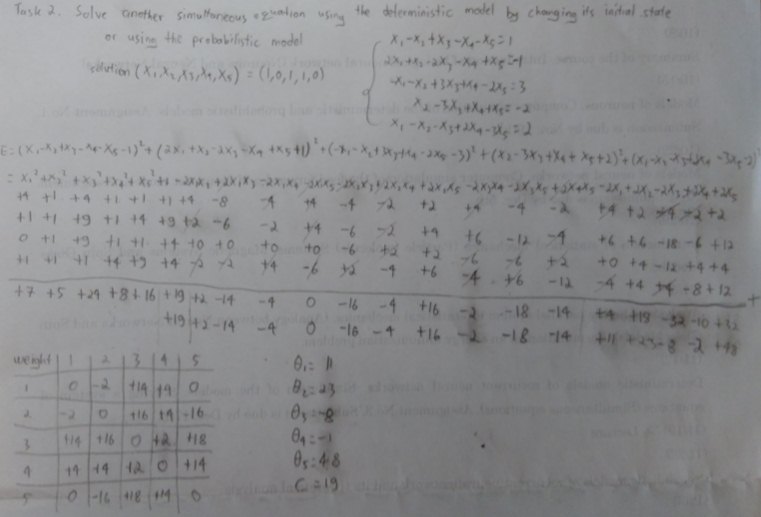 Task 2. Solve another simultaneous equation using the deterministic model by changing its initial state
or using the probabilistic model
solution (x₁, x₂, x₃, x₄, x₅) = (1, 0, 1, 1, 0)
x₁-x₂+x₃-x₄-x₅=1
2x₁+x₂-2x₃-x₄+x₅=-1
-x₁-x₂+3x₃+x₄-2x₅=3
x₂-3x₃+x₄+x₅=-2
x₁-x₂-x₃+2x₄-3x₅=2
E=(x₁-x₂+x₃-x₄-x₅-1)²+(2x₁+x₂-2x₃-x₄+x₅+1)²+(-x₁-x₂+3x₃+x₄-2x₅-3)²+(x₂-3x₃+x₄+x₅+2)²+(x₁-x₂-x₃+2x₄-3x₅-2)²
=x₁²+x₂²+x₃²+x₄²+x₅²+1-2x₁x₂+2x₁x₃-2x₁x₄-2x₁x₅-2x₂x₃+2x₂x₄+2x₂x₅-2x₃x₄-2x₃x₅+2x₄x₅-2x₁+2x₂-2x₃+2x₄+2x₅
+4 +1 +4 +1 +1 +1 +4 -8 -4 +4 -4 -2 +2 +4 -4 -2 +4 +2 -4 -2 +2
+1 +1 +9 +1 +4 +9 +2 -6 -2 +4 -6 -2 +4 +6 -12 -4 +6 +6 -18 -6 +12
0 +1 +9 +1 +1 +4 +0 +0 +0 +0 -6 +2 +2 -6 -6 +2 +0 +4 -12 +4 +4
+1 +1 +1 +4 +9 +4 -2 -2 +4 -6 +2 -4 +6 -4 +6 -12 -4 +4 +4 -8 +12
+7 +5 +24 +8 +16 +19 +2 -14 -4 0 -16 -4 +16 -2 -18 -14 +4 +18 -32 -10 +32 +
+19 +2 -14 -4 0 -16 -4 +16 -2 -18 -14 +11 +23 -8 -2 +48
weight 1 2 3 4 5
1 0 -2 +14 +4 0
2 -2 0 +16 +4 -16
3 +14 +16 0 +2 +18
4 +4 +4 +2 0 +14
5 0 -16 +18 +14 0
θ₁=11
θ₂=23
θ₃=-8
θ₄=-1
θ₅=48
C=19